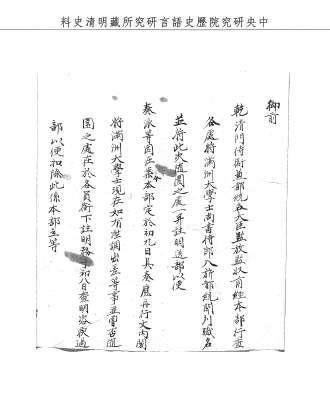 中央研究院歷史語言研究所藏明清史料
御前
乾清門侍衛兼部統五大臣監放監收前經本部行查
各處將滿洲大學士尚書侍郎八旗都統開列職名
並將此次進園之處一并註明送部以便
奏派等因在案本部定於初九日具奏應再行文內閣
將滿洲大學士現在如有應調出差等事並曾否進
園之處在於各員銜下註明務於初八日查明咨報過
部以便扣除此係本部立等